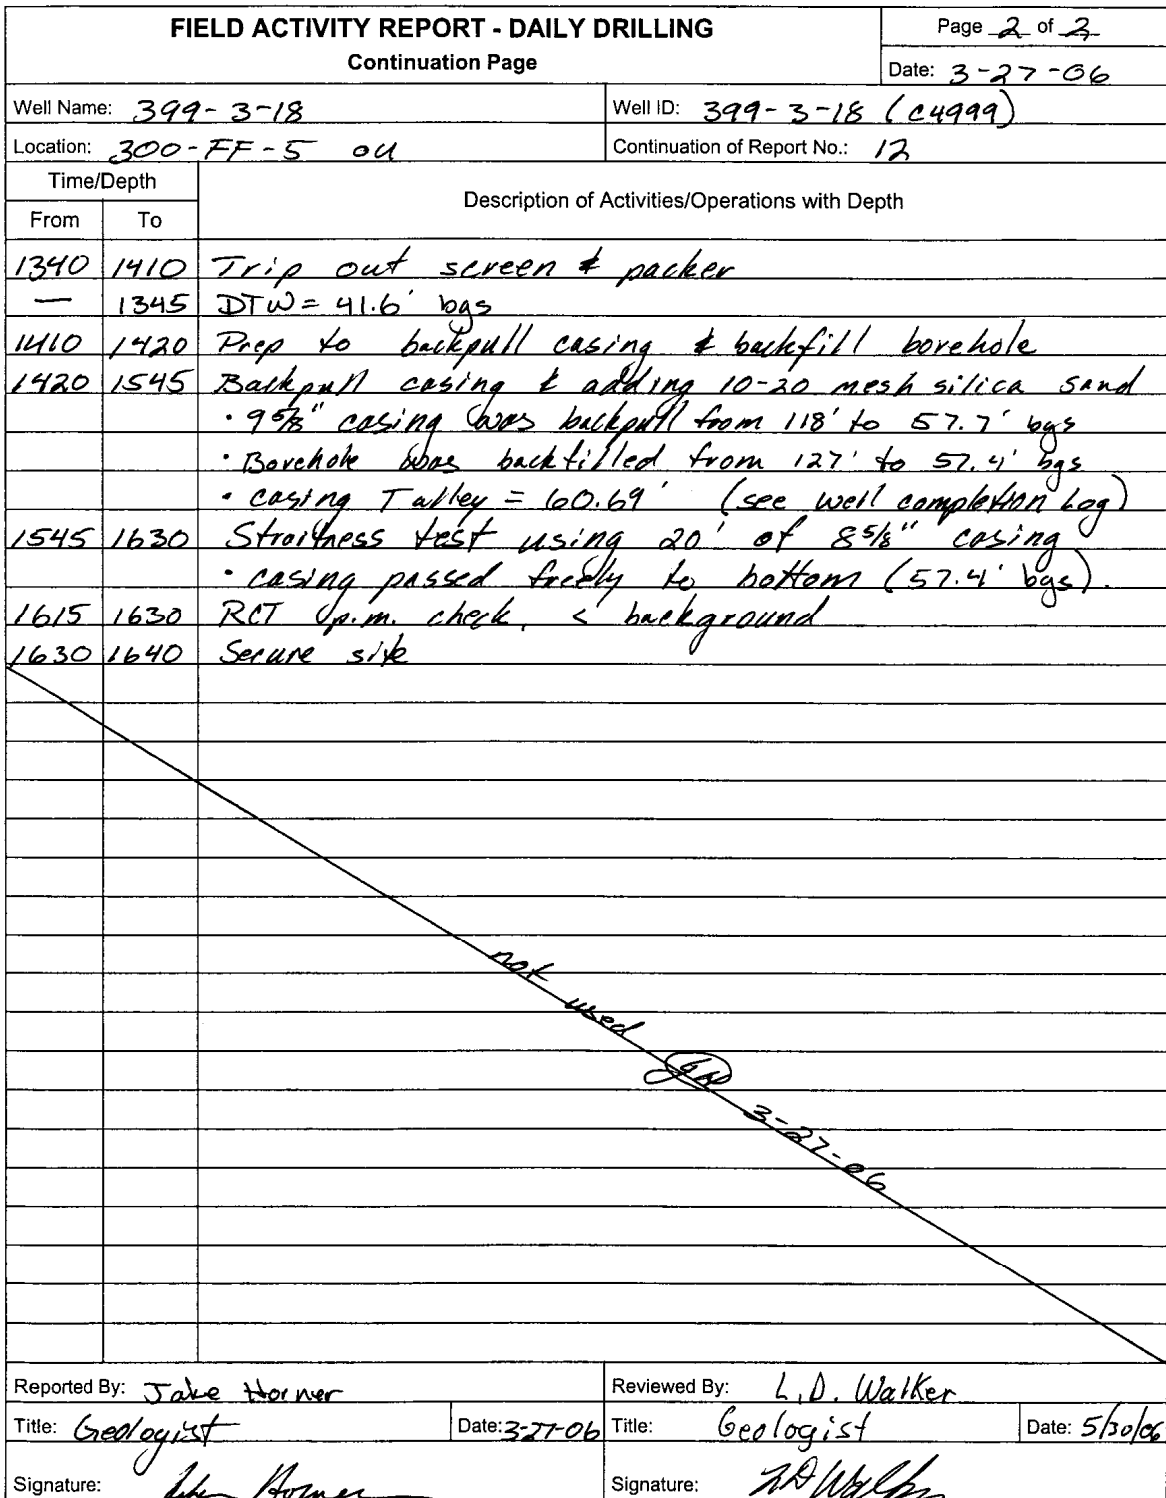 FIELD ACTIVITY REPORT - DAILY DRILLING
Continuation Page
Page 2 of 2
Date: 3-27-06
Well Name: 399-3-18
Well ID: 399-3-18 (C4999)
Location: 300-FF-5 OU
Continuation of Report No.: 12
Time/Depth
From To
Description of Activities/Operations with Depth
1340 1410 Trip out screen & packer
— 1345 DTW = 41.6' bgs
1410 1420 Prep to backpull casing & backfill borehole
1420 1545 Backpull casing & adding 10-20 mesh silica sand
· 9 5/8" casing was backpull from 118' to 57.7' bgs
· Borehole was backfilled from 127' to 57.4' bgs
· casing Talley = 60.69' (see well completion Log)
1545 1630 Straitness test using 20' of 8 5/8" casing
· casing passed freely to bottom (57.4' bgs).
1615 1630 RCT p.m. check, < background
1630 1640 Secure site
not used
3-27-06
Reported By: Jake Horner
Reviewed By: L.D. Walker
Title: Geologist
Date: 3-27-06
Title: Geologist
Date: 5/30/06
Signature: Horner
Signature: LD Walker